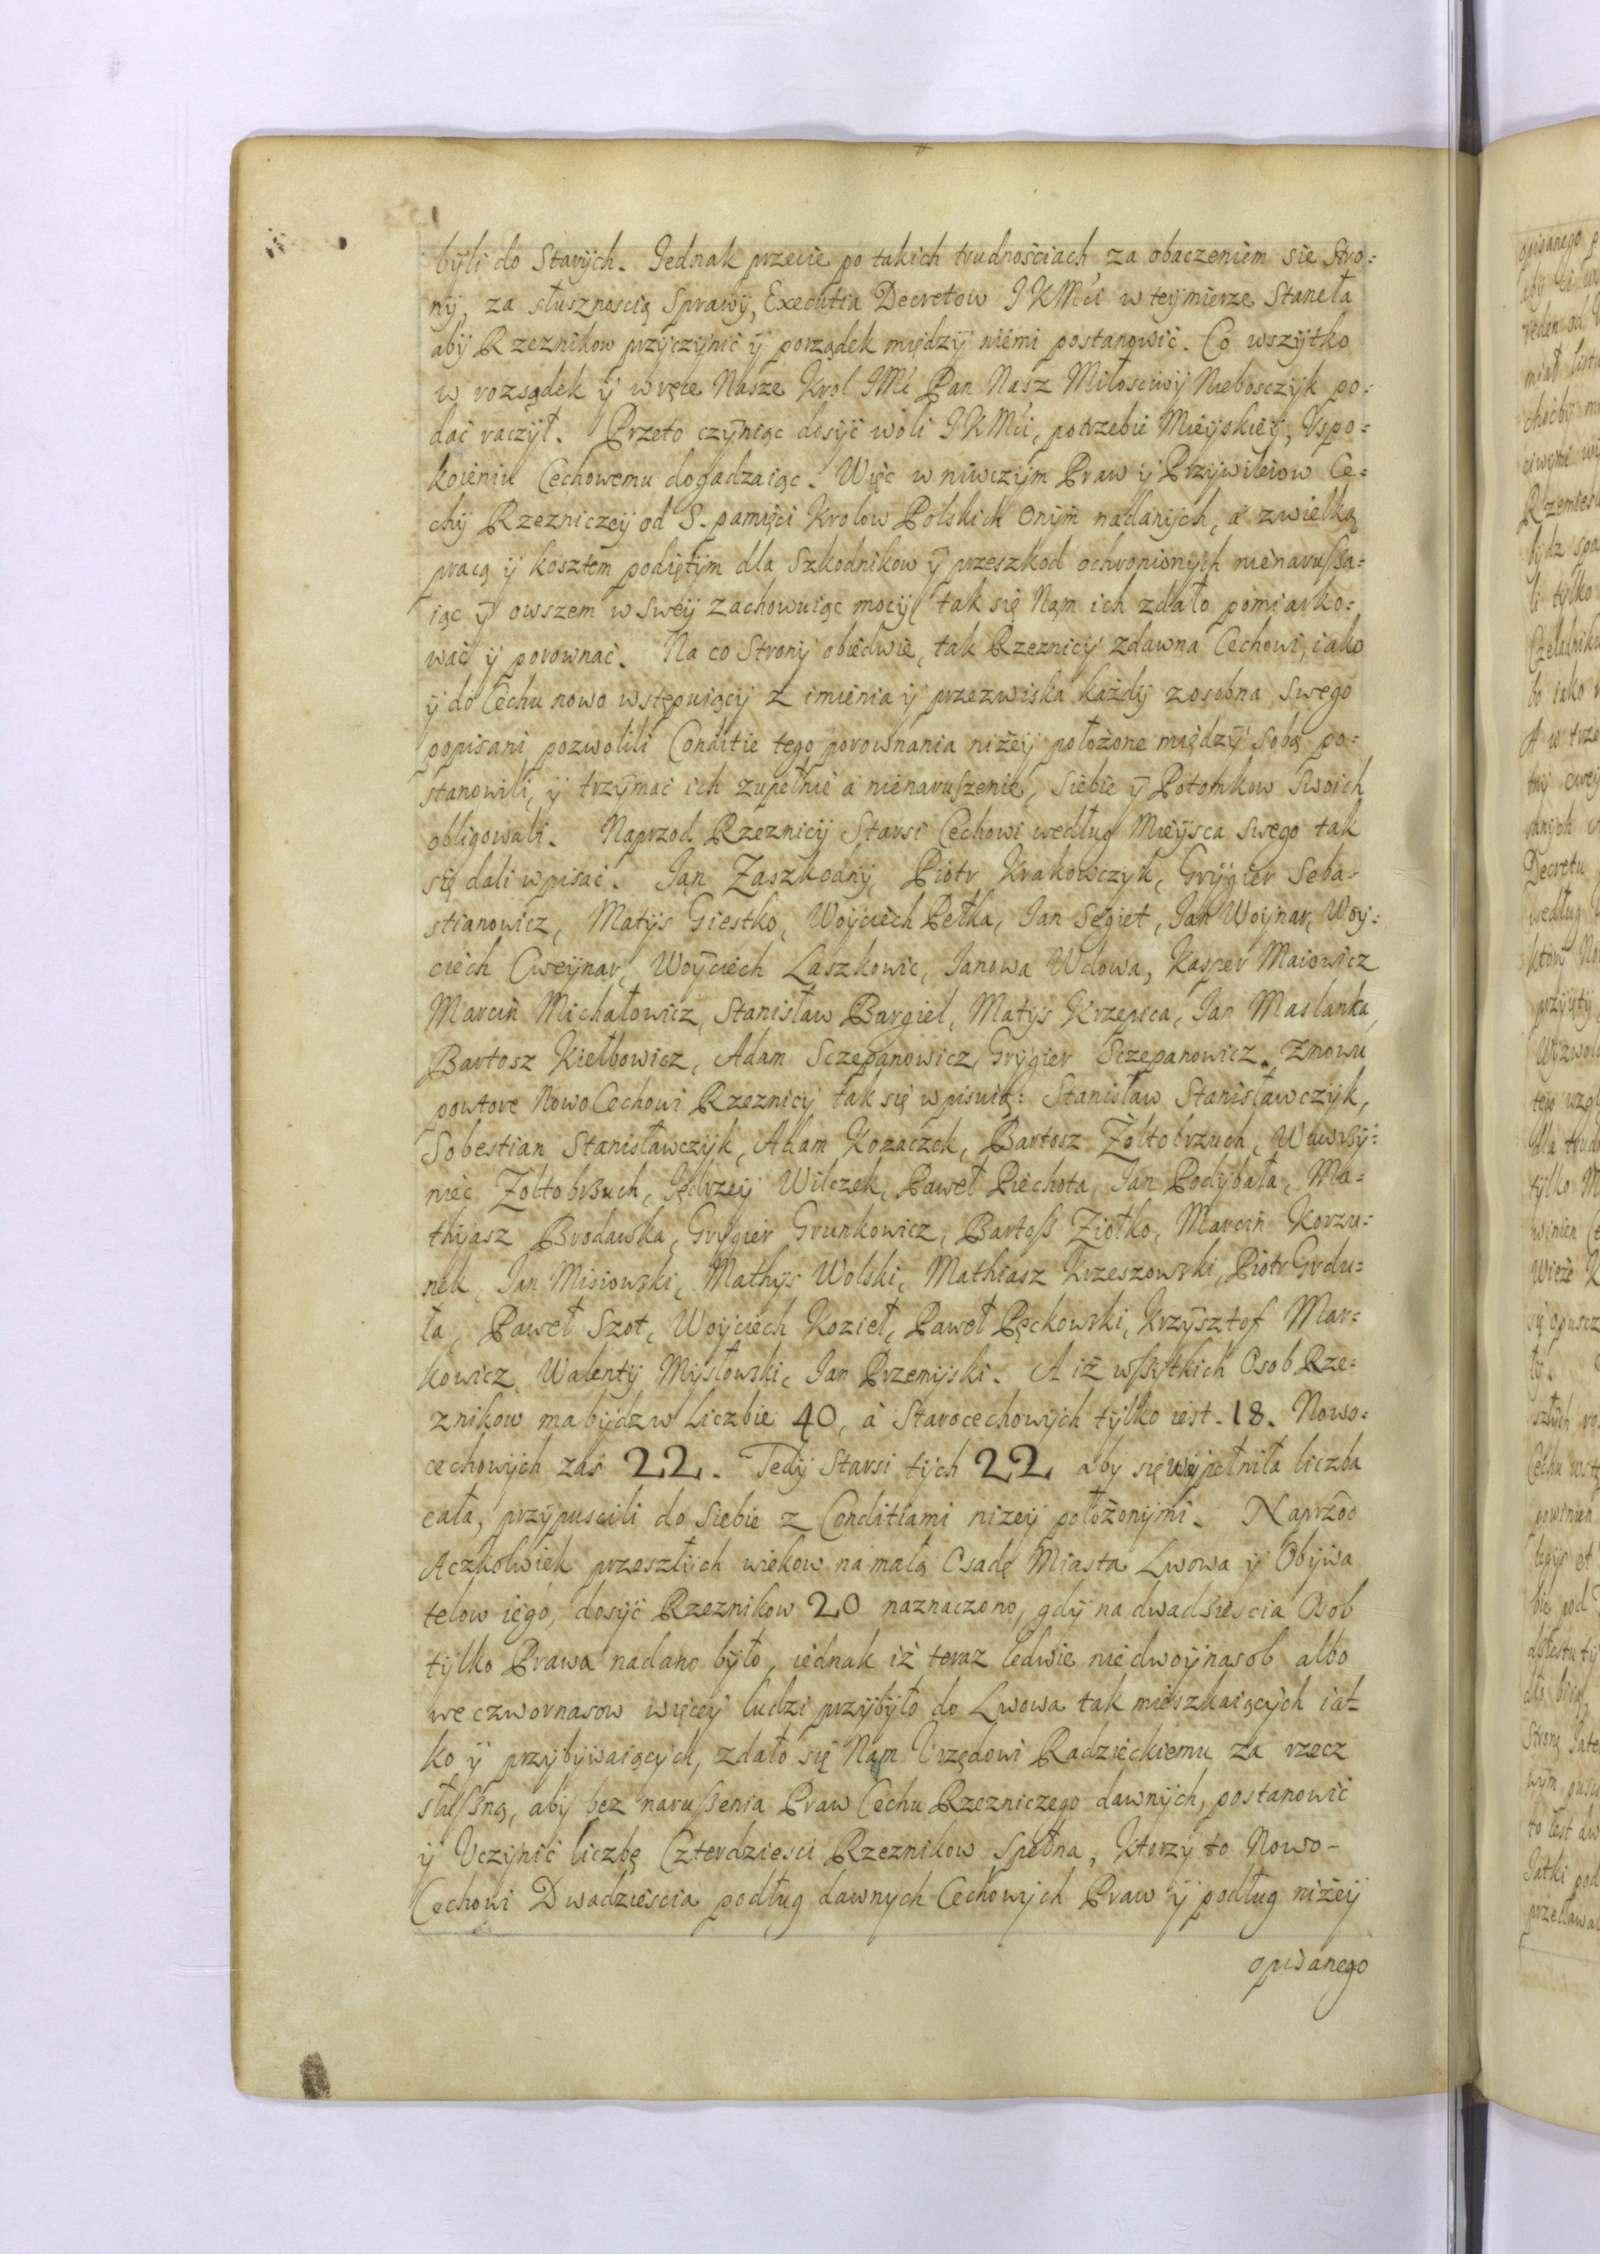 byli do Starych. Jednak przecie po takich trudnościach za obaczeniem się Stro:
ny, za słusznością Sprawy, Executia Decretow J K Mći w tey mierze Stanęła
aby Rzeznikow przyczynić y porządek między niemi postanowić. Co wszytko
w rozsądek y w ręce Nasze Krol JMć Pan Nasz Miłościwy Niebosczyk po:
dać raczył. Przeto czyniąc dosyć woli J K Mći, potrzebie Mieyskiey, Vspo:
koieniu Cechowemu dogadzaiąc. Więc w niwczym Praw y Przywileiow Ce:
chy Rzezniczey od S. pamięci Krolow Polskich onym nadanych, a zwielką
pracą y kosztem podiętym dla Szkodnikow y przeszkod ochronionych nienarußa:
iąc y owszem w swey zachowuiąc mocy tak się Nam ich zdało pomiarko:
wać y porownać. Na co Strony obiedwie, tak Rzeznicy zdawna Cechowi, iako
y do Cechu nowo wstępuiący z imienia y przezwiska każdy zosobna Swego
popisani pozwolili Conditie tego porownania niżey położone między sobą po:
stanowili, y trzymać ich zupełnie a nienaruszenie, siebie y Potomkow Swoich
obligowali. Naprzod Rzeznicy Starsi Cechowi według Mieysca swego tak
się dali wpisać. Jan Zaszkodny, Piotr Krakowczyk, Grygier Seba-
stianowicz, Matys Giestko, Woyciech Pełka, Jan Segiet, Jan Woynar, Woy:
ciech Cweynar, Woyciech Laszkowic, Janowa Wdowa, Kasper Maiowicz
Marcin Michałowicz, Stanisław Bargieł, Matys Krzepica, Jan Maslanka,
Bartosz Kiełbowicz, Adam Sczepanowicz, Grygier Sczepanowicz. Znowu
powtore Nowo Cechowi Rzeznicy tak się wpisuią: Stanisław Stanisławczyk,
Sobestian Stanisławczyk, Adam Kozaczek, Bartosz Zołtobrzuch, Wawrzy:
niec Zołtobrzuch, Jędrzey Wilczek, Paweł Piechota, Jan Podybała, Ma:
thyasz Brodawka, Grygier Grunkowicz, Bartoß Ziołko, Marcin Korzu:
nek, Jan Misiowski, Mathys Wolski, Mathiasz Krzeszowski, Piotr Grdu:
ła, Paweł Szot, Woyciech Kozieł, Paweł Pęckowski, Krzysztof Mar:
kowicz, Walenty Mysłowski, Jan Przemyski. A iż wßytkich Osob Rze:
znikow ma bydz w liczbie 40, a Starocechowych tylko iest. 18. Nowo:
cechowych zas 22. Tedy Starsi tych 22 aby się wypełniła liczba
cała, przypuscili do siebie z Conditiami nizey położonymi. Naprzod
Aczkolwiek przeszłych wiekow na małą Osadę Miasta Lwowa y Obywa
telow iego, dosyć Rzeznikow 20 naznaczono, gdy na dwadziescia Osob
tylko Prawa nadano było, iednak iż teraz ledwie nie dwoynasob albo
we czwornasow więcey ludzi przybyło do Lwowa tak mieszkaiących ia-
ko y przybywaiących, zdało się Nam Vrzędowi Radzieckiemu za rzecz
słußną, aby bez narußenia Praw Cechu Rzezniczego dawnych, postanowić
y Vczynić liczbę Czterdziesci Rzeznikow Spełna, Ktorzy to Nowo-
Cechowi Dwadziescia podług dawnych Cechowych Praw y podług niżey
opisanego